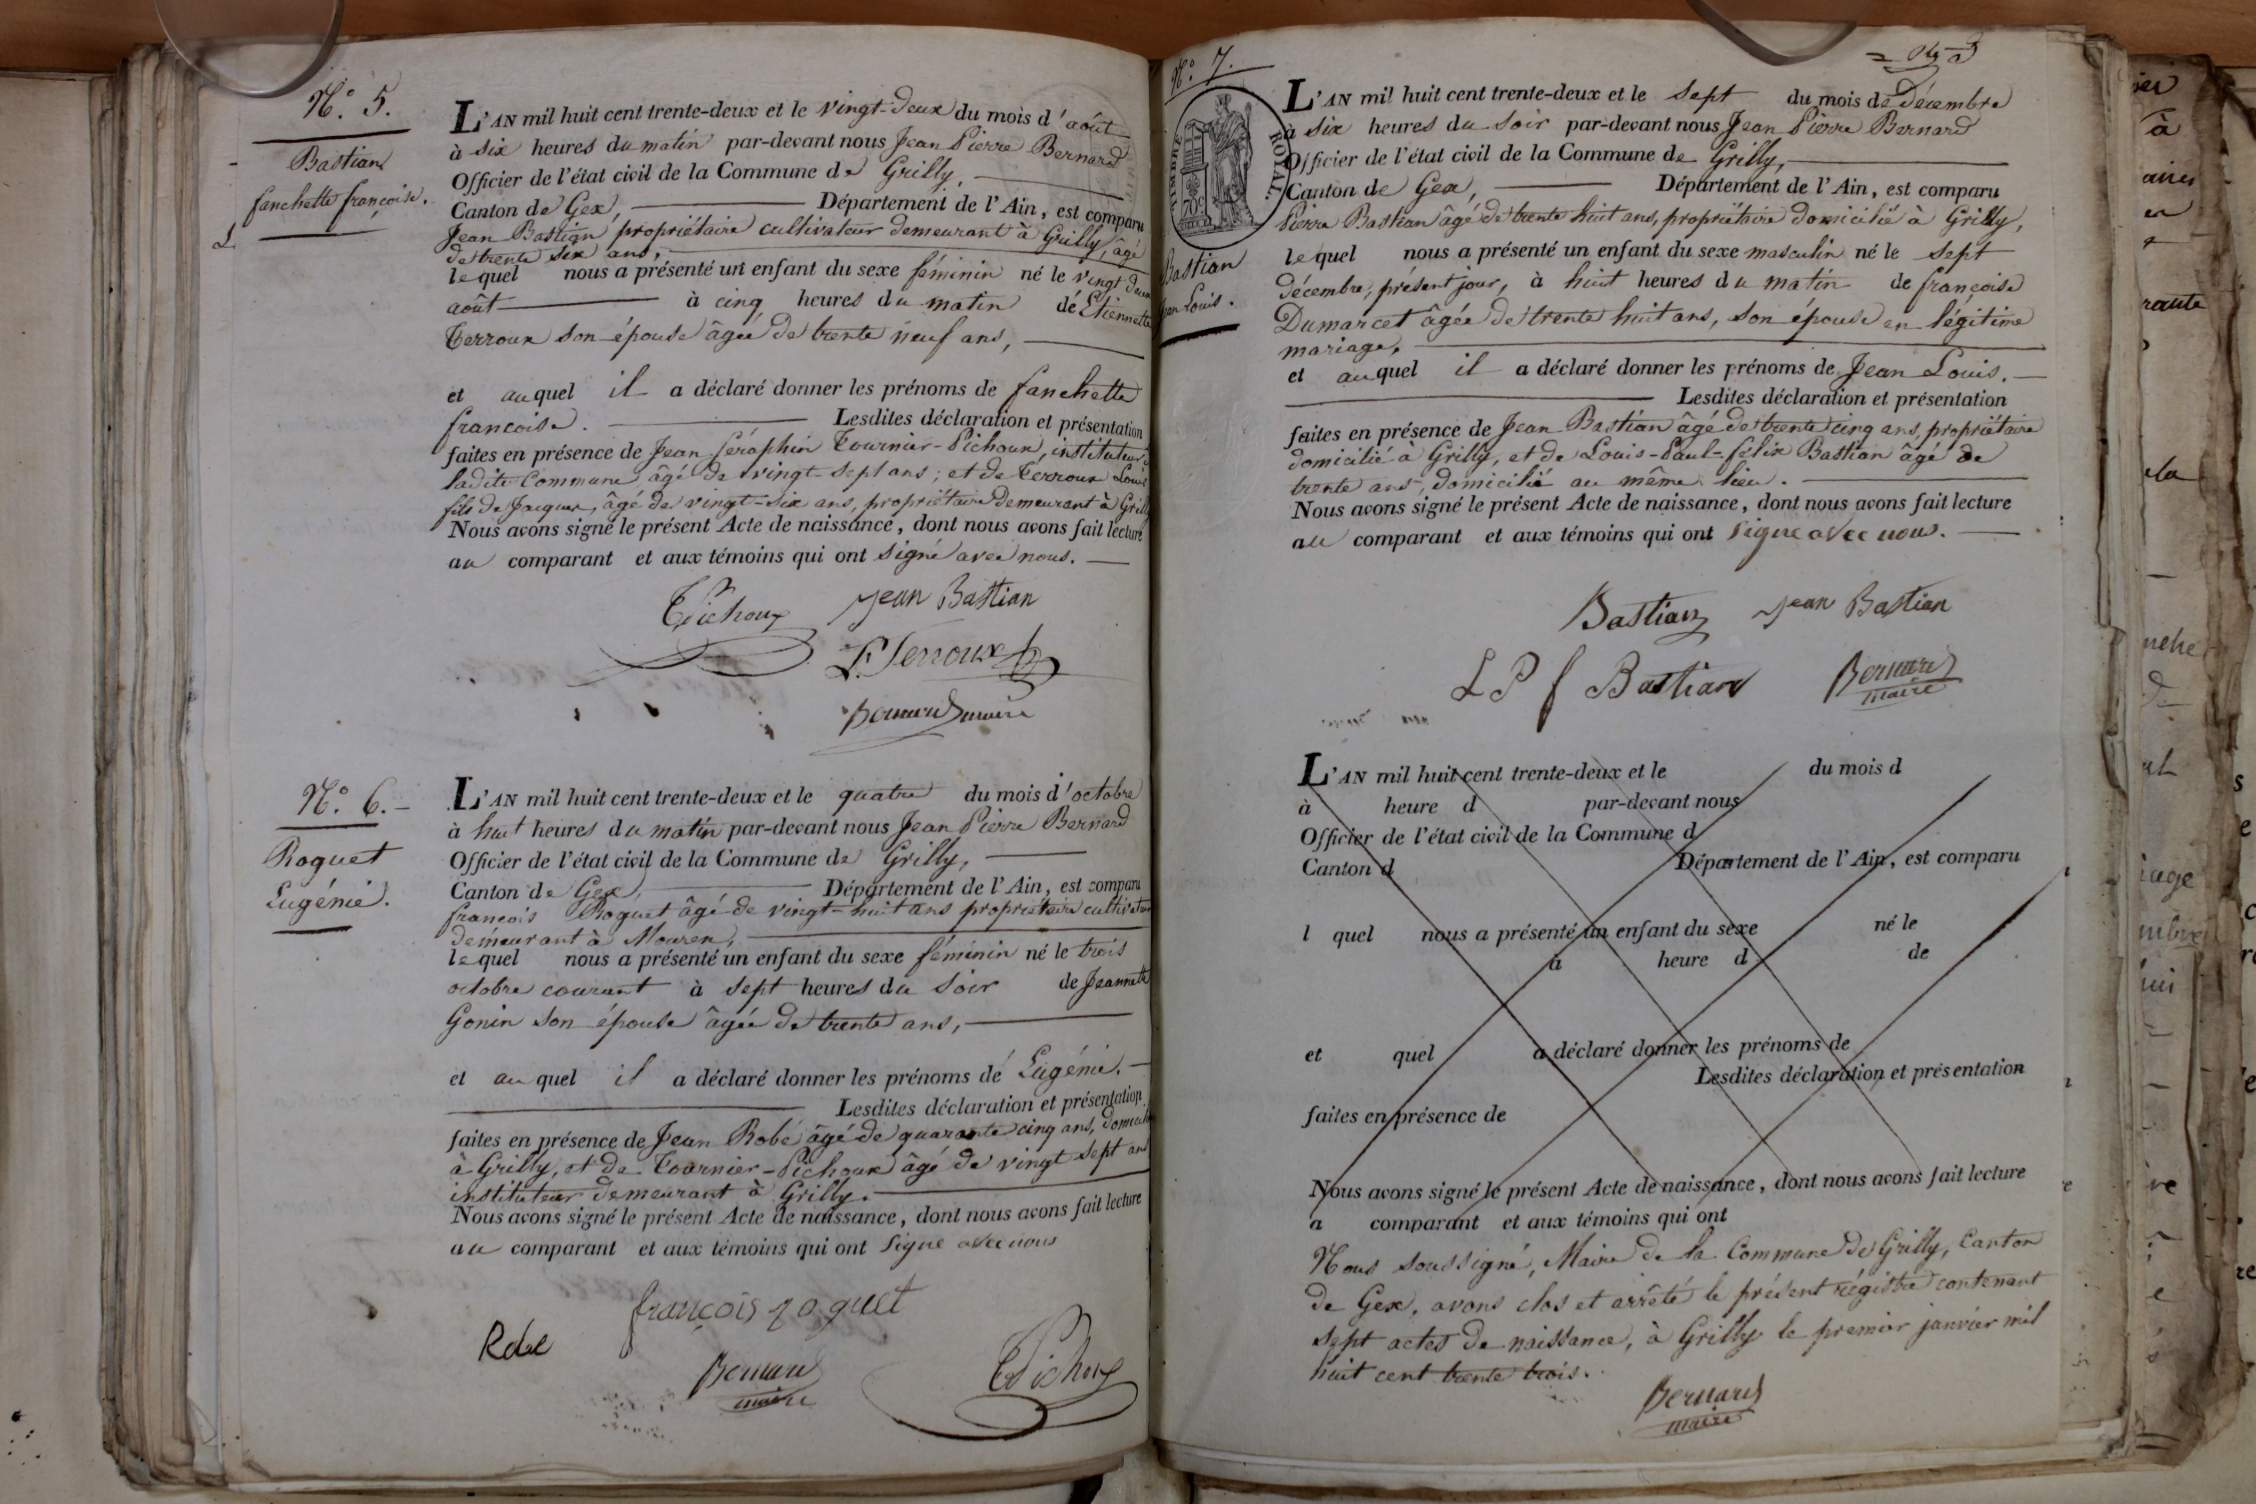 N.° 5.
Bastian
fanchette françoise.
L'AN mil huit cent trente-deux et le vingt-deux du mois d'août
à six heures du matin par-devant nous Jean Pierre Bernard
Officier de l'état civil de la Commune de Grilly,
Canton de Gex, Département de l'Ain, est comparu
Jean Bastian propriétaire cultivateur demeurant à Grilly, âgé
de trente six ans,
lequel nous a présenté un enfant du sexe féminin né le vingt deux
août à cinq heures du matin de Etiennette
Terroux son épouse âgée de trente neuf ans,
et auquel il a déclaré donner les prénoms de fanchette
francoise. Lesdites déclaration et présentation
faites en présence de Jean Séraphin Tournier-Pichoux, instituteur
ladite Commune âgé de vingt-sept ans; et de Terroux Louis
fils de Jacques, âgé de vingt-six ans, propriétaire demeurant à Grilly
Nous avons signé le présent Acte de naissance, dont nous avons fait lecture
au comparant et aux témoins qui ont signé avec nous.
TPichoux Jean Bastian
L. Terroux
Bernard maire
N.° 6.
Roquet
Eugénie.
L'AN mil huit cent trente-deux et le quatre du mois d'octobre
à huit heures du matin par-devant nous Jean Pierre Bernard
Officier de l'état civil de la Commune de Grilly,
Canton de Gex, Département de l'Ain, est comparu
françois Roquet âgé de vingt-huit ans propriétaire cultivateur
demeurant à Mourex,
lequel nous a présenté un enfant du sexe féminin né le trois
octobre courant à sept heures du soir de Jeannette
Gonin son épouse âgée de trente ans,
et auquel il a déclaré donner les prénoms de Eugénie.
Lesdites déclaration et présentation
faites en présence de Jean Robé âgé de quarante cinq ans, domicilié
à Grilly, et de Tournier-Pichoux âgé de vingt sept ans
instituteur demeurant à Grilly.
Nous avons signé le présent Acte de naissance, dont nous avons fait lecture
au comparant et aux témoins qui ont signé avec nous
françois roquet
Robe
Bernard
maire
TPichoux
N.° 7.
TIMBRE ROYAL.
Bastian
Jean Louis.
L'AN mil huit cent trente-deux et le sept du mois de Décembre
à six heures du soir par-devant nous Jean Pierre Bernard
Officier de l'état civil de la Commune de Grilly,
Canton de Gex, Département de l'Ain, est comparu
Pierre Bastian âgé de trente huit ans, propriétaire domicilié à Grilly,
lequel nous a présenté un enfant du sexe masculin né le sept
décembre, présent jour, à huit heures du matin de françoise
Dumarcet âgée de trente huit ans, son épouse en légitime
mariage,
et auquel il a déclaré donner les prénoms de Jean Louis.
Lesdites déclaration et présentation
faites en présence de Jean Bastian âgé de trente cinq ans, propriétaire
domicilié à Grilly, et de Louis-Paul-félix Bastian âgé de
trente ans, domicilié au même lieu.
Nous avons signé le présent Acte de naissance, dont nous avons fait lecture
au comparant et aux témoins qui ont signé avec nous.
Bastian Jean Bastian
L P f Bastian Bernard
maire
L'AN mil huit cent trente-deux et le du mois d
à heure d par-devant nous
Officier de l'état civil de la Commune d
Canton d Département de l'Ain, est comparu
l quel nous a présenté un enfant du sexe né le
à heure d de
et quel a déclaré donner les prénoms de
Lesdites déclaration et présentation
faites en présence de
Nous avons signé le présent Acte de naissance, dont nous avons fait lecture
a comparant et aux témoins qui ont
Nous soussigné, Maire de la Commune de Grilly, Canton
de Gex, avons clos et arrêté le présent régistre contenant
sept actes de naissance, à Grilly le premier janvier mil
huit cent trente trois.
Bernard
maire